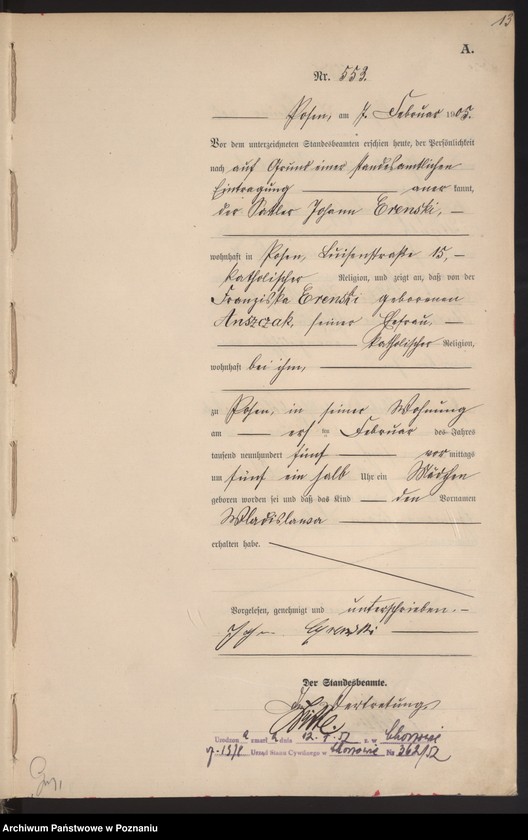 13
A.
Nr. 559.
Posen, am 7. Februar 1905.
Vor dem unterzeichneten Standesbeamten erschien heute, der Persönlichkeit
nach auf Grund einer standesamtlichen
Eintragung anerkannt,
der Sattler Johann Erenski,
wohnhaft in Posen, Luisenstraße 15,
katholischer Religion, und zeigt an, daß von der
Franziska Erenski geborenen
Anszczak, seiner Ehefrau,
katholischer Religion,
wohnhaft bei ihm,
zu Posen, in seiner Wohnung
am ersten Februar des Jahres
tausend neunhundert fünf vormittags
um fünf ein halb Uhr ein Mädchen
geboren worden sei und daß das Kind den Vornamen
Wladislawa
erhalten habe.
Vorgelesen, genehmigt und unterschrieben.
Erenski
Der Standesbeamte.
In Vertretung
Urodzona zmarła dnia 12. 7. 57 r. w Chorzowie
Urząd Stanu Cywilnego w Chorzowie Nr 362/57
Archiwum Państwowe w Poznaniu